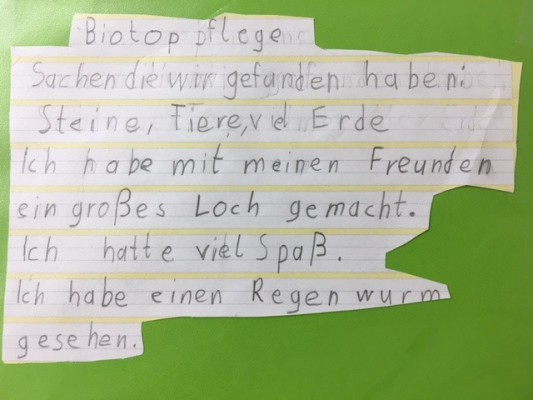 Biotop pflege
Sachen die wir gefunden haben:
Steine, Tiere, viel Erde
Ich habe mit meinen Freunden
ein großes Loch gemacht.
Ich hatte viel Spaß.
Ich habe einen Regenwurm
gesehen.